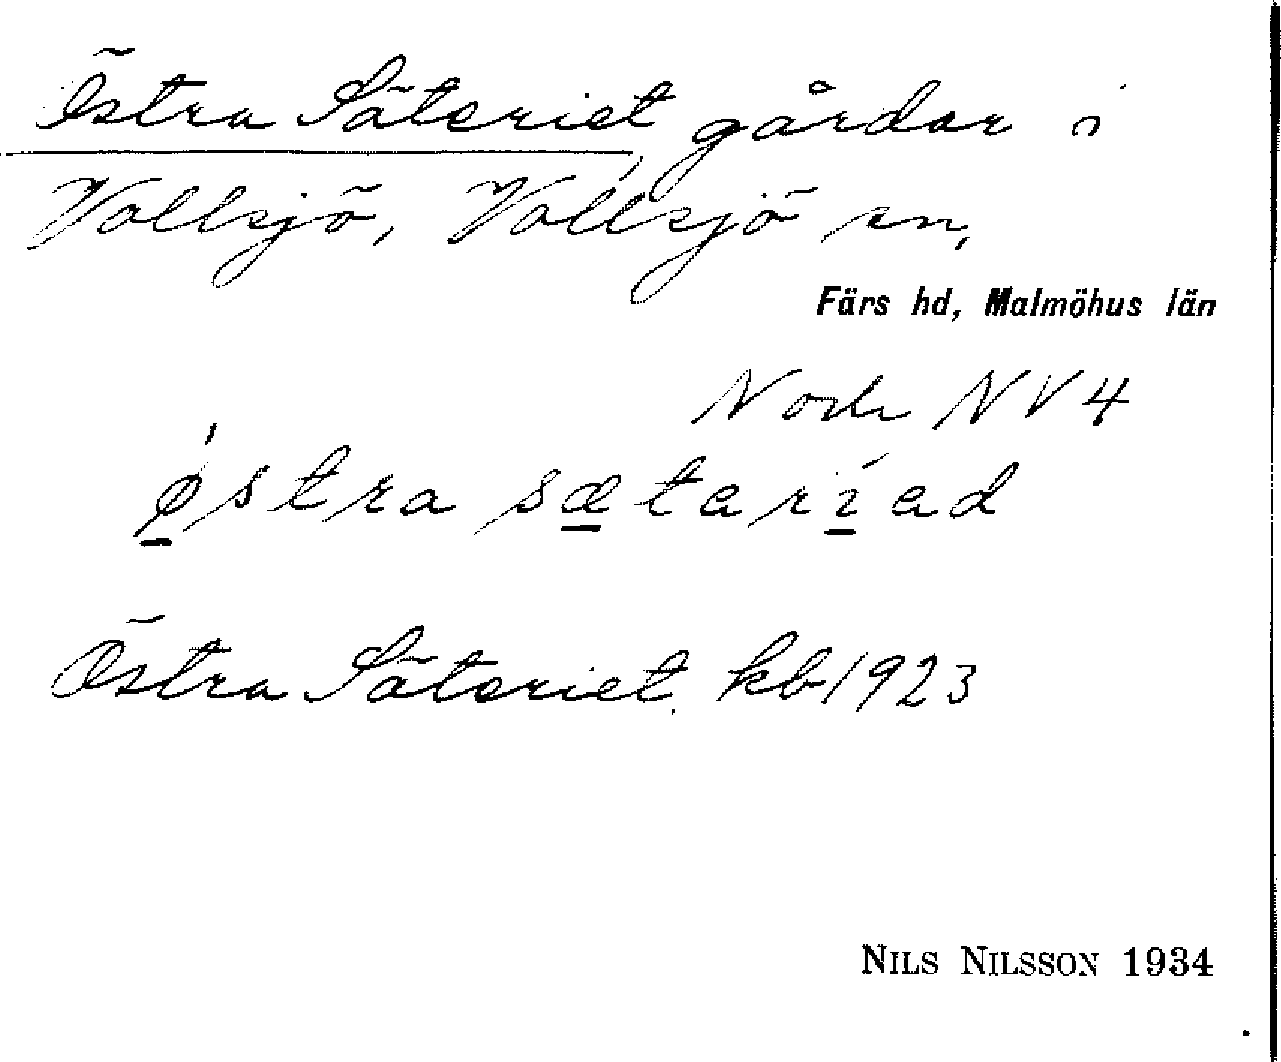 Östra Säteriet, gårdar i
Vollsjö, Vollsjö sn,
Färs hd, Malmöhus län
NV4
østra sætariad
Östra Säteriet kb 1923
NILS NILSSON 1934